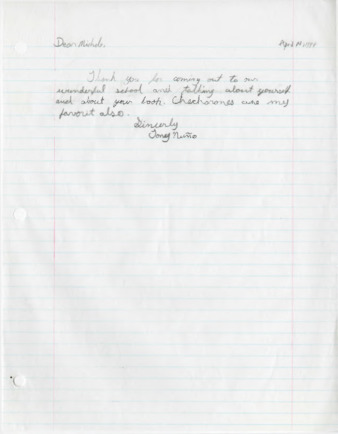 Dear Michele, April 19 1999
Thank you for coming out to our
wonderful school and talking about yourself
and about your book. Chechorones are my
favorit also.
Sincerly
Tony Nuño